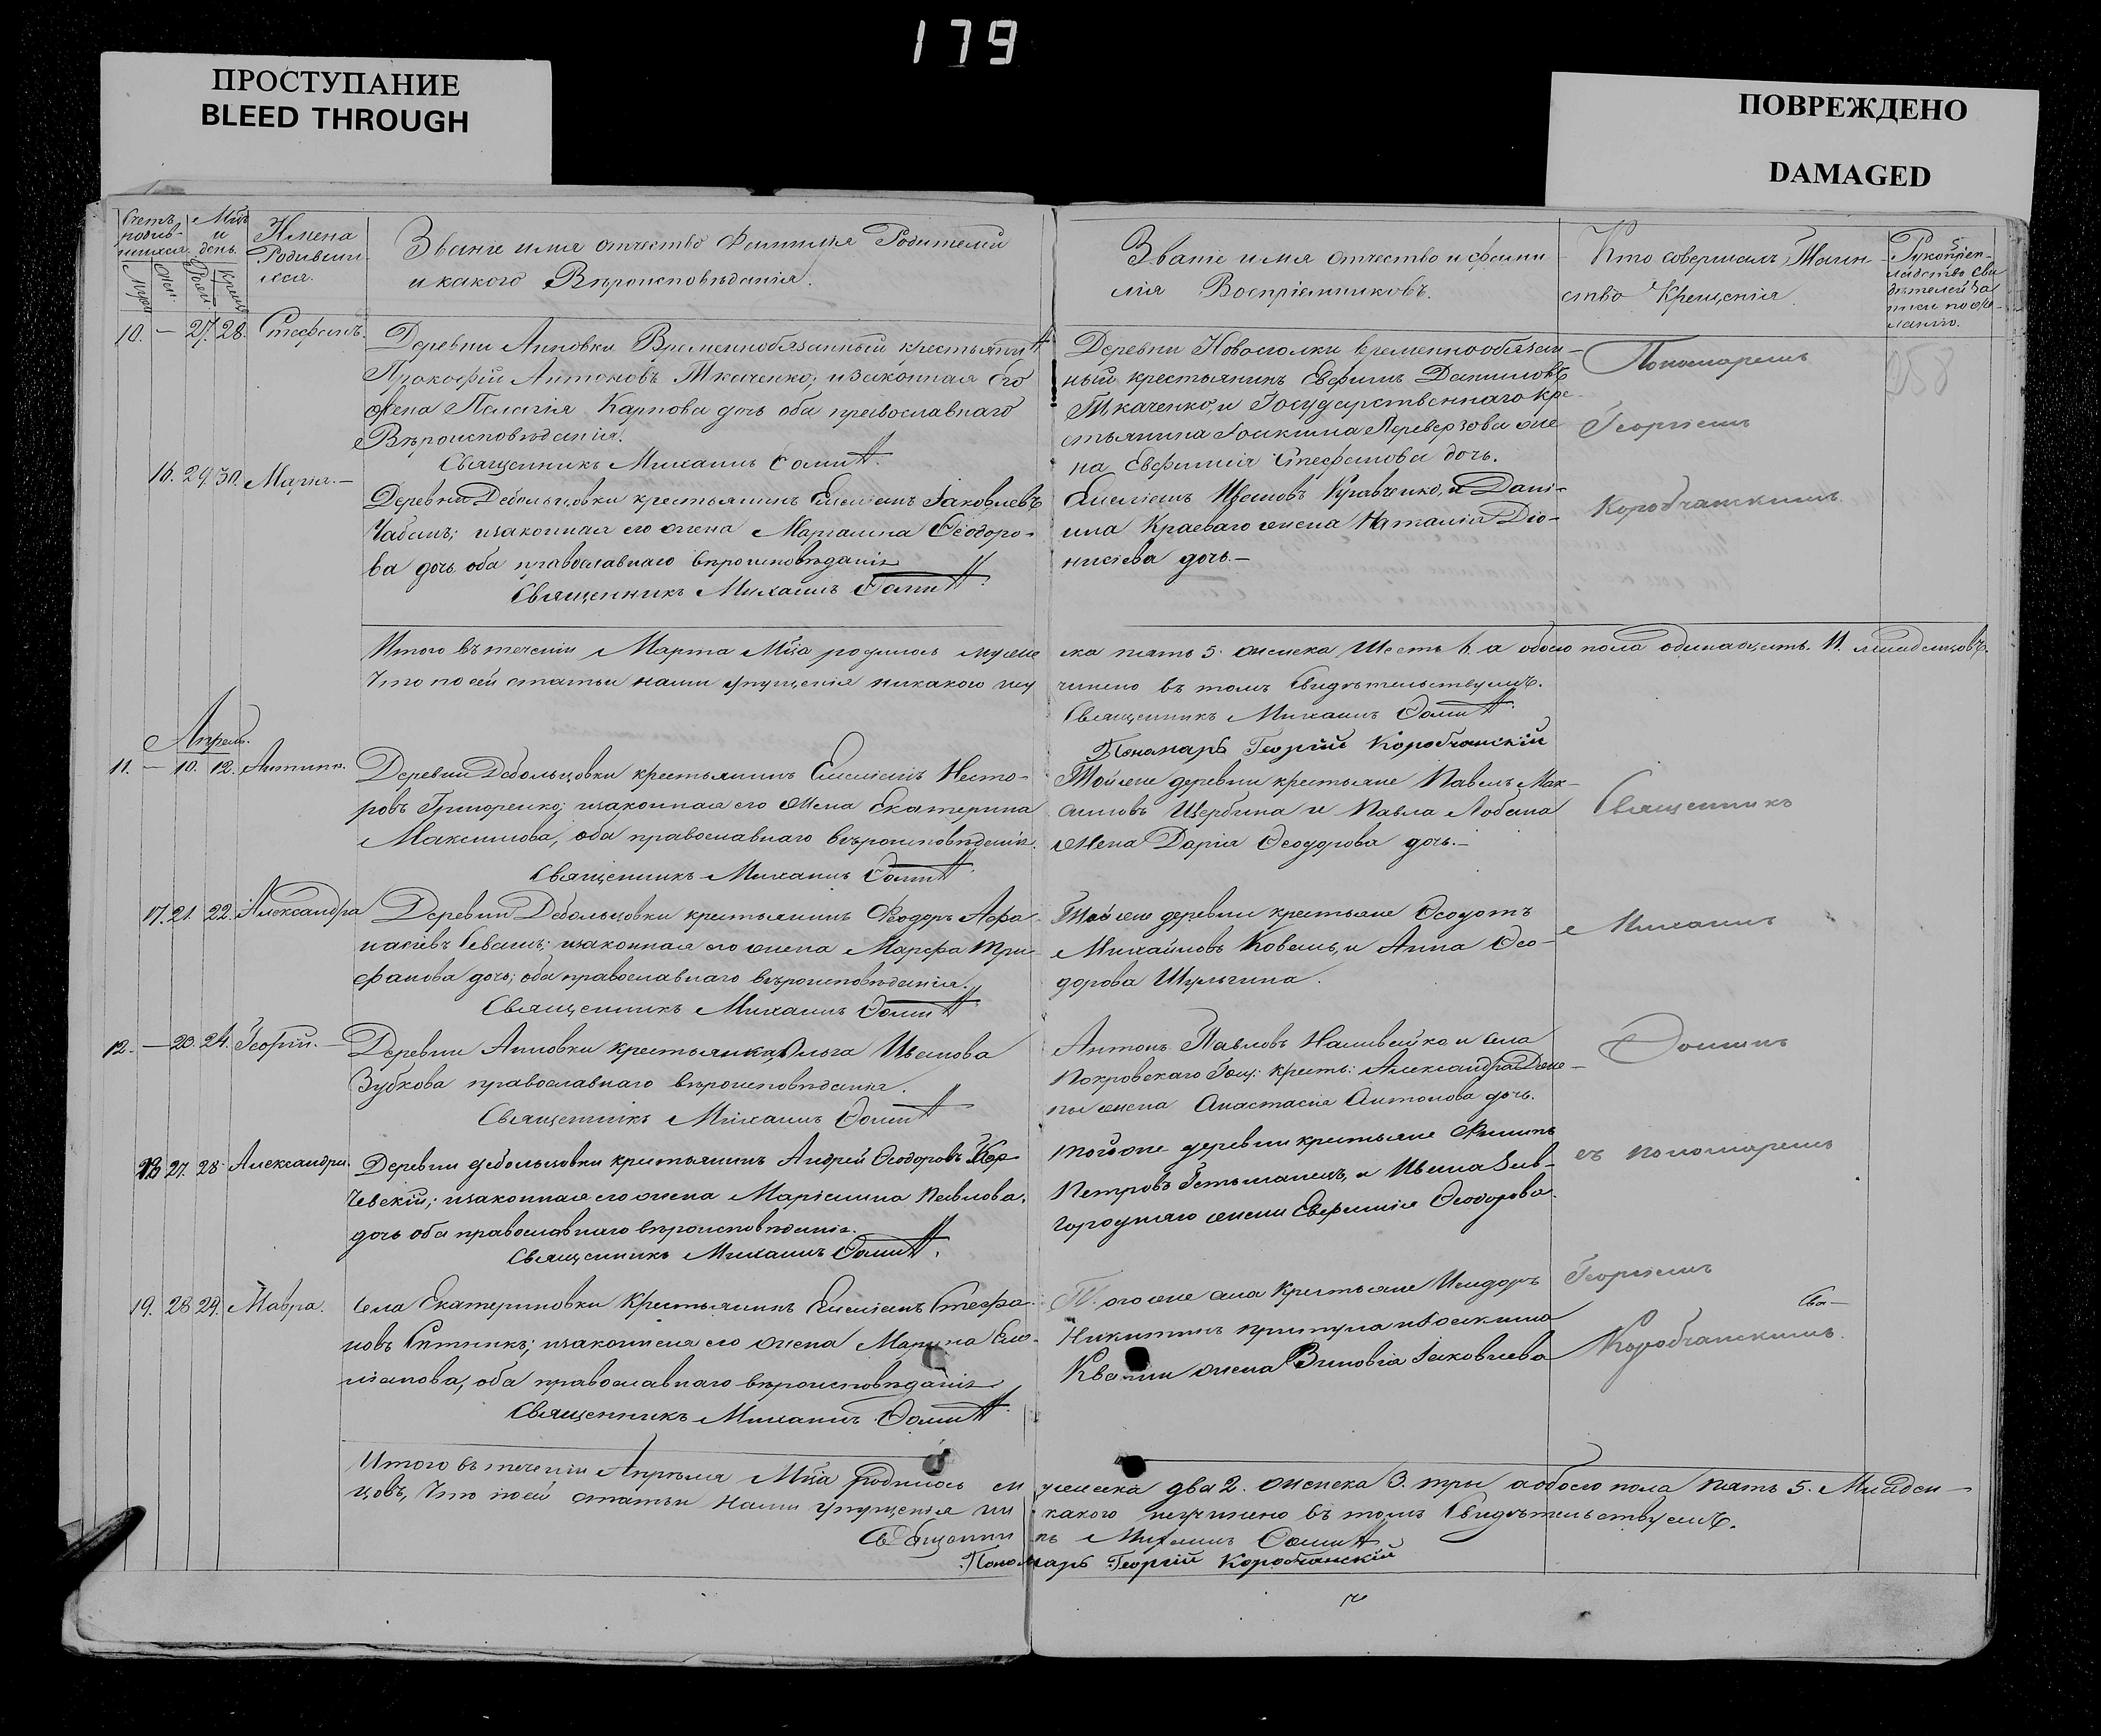 179
ПРОСТУПАНИЕ
BLEED THROUGH
ПОВРЕЖДЕНО
DAMAGED
Счетъ родив-шихся
Муж. Жен.
Мѣс. и день.
Рожд. Крещ.
Имена Родивши-хся.
Званіе имя отчество Фамилія Родителей
и какого Вѣроисповѣданія.
Званіе имя отчество и фами
лія Воспріемниковъ.
Кто совершалъ Таин-
ство Крещенія.
Рукоприк-
ладство сви
дѣтелей за
писи по же-
ланію.
10. — 27. 28. Стефанъ.
Деревни Анновки Временнобязанный крестьянинъ
Прокофій Антоновъ Ткаченко; и законная его
жена Пелагія Карпова дочь оба православнаго
Вѣроисповѣданія.
Священникъ Михаилъ
Деревни Новоселки временнообязан-
ный крестьянинъ Евфимъ Даниловъ
Ткаченко, и Государственнаго кре-
стьянина Іоакима Переверзова же
на Евфимія Стефанова дочь.
Пономаремъ
Георгіемъ
Коробчанскимъ
258
16. 29. 30. Марія. —
Деревни Дебольцовки крестьянинъ Емеліанъ Іаковлевъ
Чабанъ; и законная его жена Маріамна Ѳеодоро-
ва дочь оба православнаго вѣроисповѣданія
Священникъ Михаилъ
Емеліанъ Ивановъ Кравченко, и Дані-
ила Краеваго жена Наталія Діо-
нисіева дочь. —
Итого въ теченіи Марта Мца родилось муже
ска пять 5. женска Шесть 6. а обоего пола одинадцать. 11. младенцовъ.
Что по сей статьи нами упущенія никакого неу
чинено въ томъ Свидѣтельствуемъ.
Священникъ Михаилъ
Пономарь Георгій Коробчанскій
Апрель.
11. — 10. 12. Антипъ.
Деревни Дебольцовки крестьянинъ Емеліанъ Несто-
ровъ Григоренко; и законная его жена Екатерина
Максимова, оба православнаго вѣроисповѣданія.
Священникъ Михаилъ
Той же деревни крестьяне Павелъ Мак-
симовъ Щербина и Павла Лобана
жена Дарія Ѳеодорова дочь. —
Священникъ
17. 21. 22. Александра
Деревни Дебольцовки крестьянинъ Ѳеодоръ Афа-
насіевъ; и законная его жена Марфа Три-
фанова дочь; оба православнаго вѣроисповѣданія.
Священникъ Михаилъ
Той же деревни крестьяне Ѳеодотъ
Михайловъ Коваль, и Анна Ѳео-
дорова Шульгина.
Михаилъ
12. — 23. 24. Георгій. —
Деревни Анновки крестьянка Ольга Иванова
Зубкова православнаго вѣроисповѣданія.
Священникъ Михаилъ
Антонъ Павловъ Наливайко и села
Покровскаго Гощ: крест: Александра
жена Анастасія Антонова дочь.
18. 27. 28. Александра.
Деревни Дебольцовки крестьянинъ Андрей Ѳеодоровъ Кор
чевскій; и законная его жена Маріамна Павлова,
дочь оба православнаго вѣроисповѣданія.
Священникъ Михаилъ
той же деревни крестьяне Филипъ
Петровъ Гетьманецъ, и Ивана Зав-
городняго жена Евфимія Ѳеодорова.
съ пономаремъ
19. 28. 29. Мавра.
Села Екатериновки Крестьянинъ Емеліанъ Стефа-
новъ Ситникъ; и законная его жена Марина Еме-
ліанова, оба православнаго вѣроисповѣданія
Священникъ Михаилъ
Того же села Крестьяне Исидоръ
Никитинъ Притула и Іоакима
Кваши жена Зиновія Іаковлева
Георгіемъ
Коробчанскимъ.
Сви—
Итого въ теченіи Апрѣля Мца родилось м
ужеска два 2. женска 3. три а обоего пола пять 5. Младен—
цовъ, Что по сей статьи нами упущенія ни
какого неучинено въ томъ Свидѣтельствуемъ.
Священникъ Михаилъ
Пономарь Георгій Коробчанскій